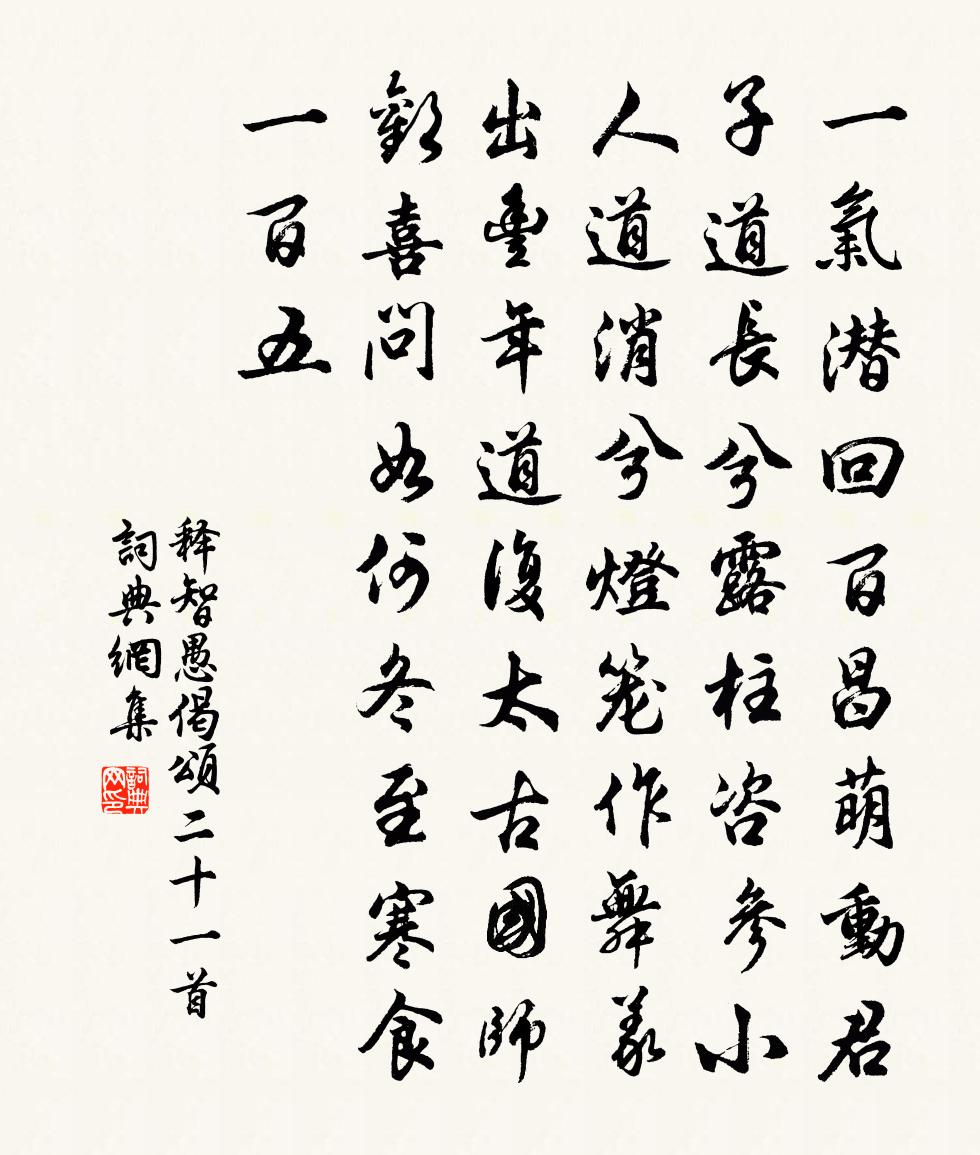 一氣潛回百昌萌動君
子道長兮露柱咨參小
人道消兮燈笼作舞羲
出豐年道復太古國師
歡喜問如何冬至寒食
一百五
释智愚偈頌二十一首
詞典網集
詞典网印